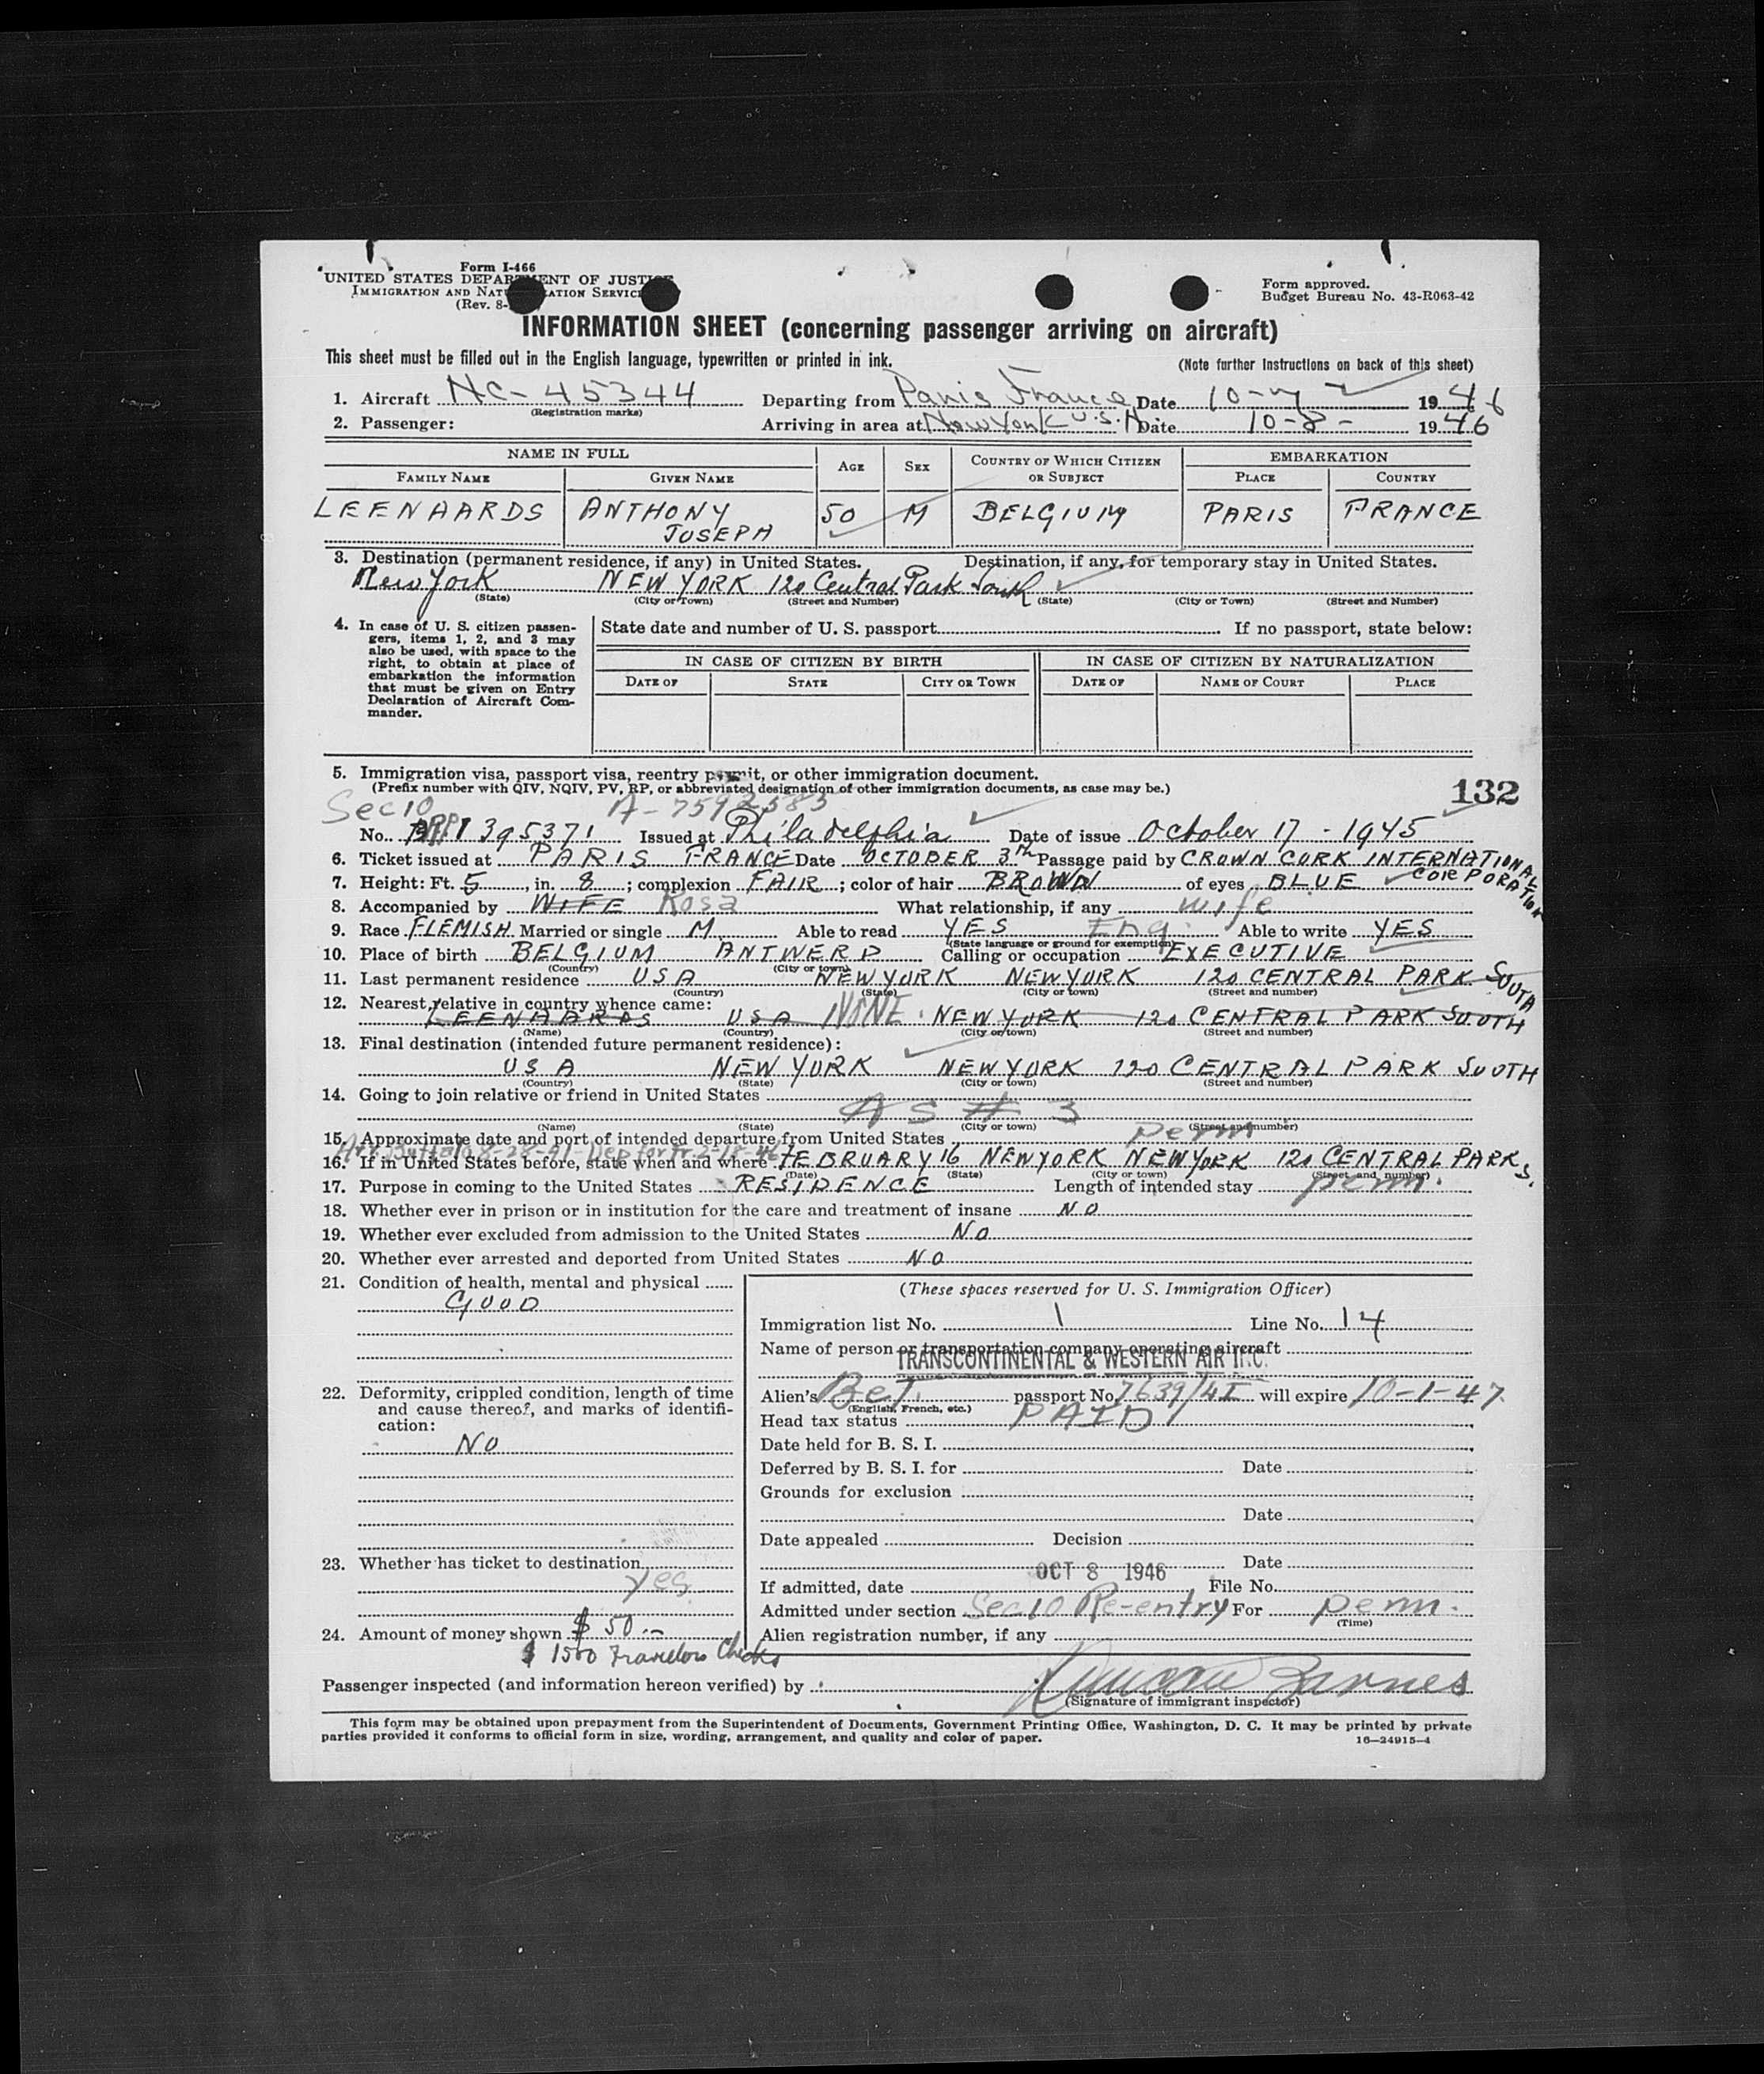 Form I-466
UNITED STATES DEPARTMENT OF JUSTICE
IMMIGRATION AND NATURALIZATION SERVICE
(Rev. 8-
Form approved.
Budget Bureau No. 43-R063-42
INFORMATION SHEET (concerning passenger arriving on aircraft)
This sheet must be filled out in the English language, typewritten or printed in ink.
(Note further instructions on back of this sheet)
1. Aircraft NC-45344 Departing from Paris France Date 10-7 1946
(Registration marks)
2. Passenger: Arriving in area at New York U.S.A Date 10-8- 1946
NAME IN FULL AGE SEX COUNTRY OF WHICH CITIZEN OR SUBJECT EMBARKATION
FAMILY NAME GIVEN NAME PLACE COUNTRY
LEENAARDS ANTHONY JOSEPH 50 M BELGIUM PARIS FRANCE
3. Destination (permanent residence, if any) in United States. Destination, if any, for temporary stay in United States.
New York NEW YORK 120 Central Park South
(State) (City or Town) (Street and Number) (State) (City or Town) (Street and Number)
4. In case of U. S. citizen passengers, items 1, 2, and 3 may also be used, with space to the right, to obtain at place of embarkation the information that must be given on Entry Declaration of Aircraft Commander.
State date and number of U. S. passport If no passport, state below:
IN CASE OF CITIZEN BY BIRTH IN CASE OF CITIZEN BY NATURALIZATION
DATE OF STATE CITY OR TOWN DATE OF NAME OF COURT PLACE
5. Immigration visa, passport visa, reentry permit, or other immigration document.
(Prefix number with QIV, NQIV, PV, RP, or abbreviated designation of other immigration documents, as case may be.)
132
Sec 10 A-7592583
No. 1395371 Issued at Philadelphia Date of issue October 17-1945
6. Ticket issued at PARIS FRANCE Date OCTOBER 3th Passage paid by CROWN CORK INTERNATIONAL CORPORATION
7. Height: Ft. 5, in. 8; complexion FAIR; color of hair BROWN of eyes BLUE
8. Accompanied by WIFE Rosa What relationship, if any wife
9. Race FLEMISH Married or single M Able to read YES Eng. Able to write YES
(State language or ground for exemption)
10. Place of birth BELGIUM ANTWERP Calling or occupation EXECUTIVE
(Country) (City or town)
11. Last permanent residence USA NEW YORK NEW YORK 120 CENTRAL PARK SOUTH
(Country) (State) (City or town) (Street and number)
12. Nearest relative in country whence came:
LEENAARDS USA NONE. NEW YORK 120 CENTRAL PARK SOUTH
(Name) (Country) (City or town) (Street and number)
13. Final destination (intended future permanent residence):
USA NEW YORK NEW YORK 120 CENTRAL PARK SOUTH
(Country) (State) (City or town) (Street and number)
14. Going to join relative or friend in United States
AS # 3
(Name) (State) (City or town) (Street and number)
15. Approximate date and port of intended departure from United States perm
Arr. Buffalo 8-28-41-Dep for Fr. 2-18-46
16. If in United States before, state when and where FEBRUARY 16 NEW YORK NEW YORK 120 CENTRAL PARK S.
(Date) (State) (City or town) (Street and number)
17. Purpose in coming to the United States RESIDENCE Length of intended stay perm.
18. Whether ever in prison or in institution for the care and treatment of insane NO
19. Whether ever excluded from admission to the United States NO
20. Whether ever arrested and deported from United States NO
21. Condition of health, mental and physical
GOOD
22. Deformity, crippled condition, length of time and cause thereof, and marks of identification:
NO
23. Whether has ticket to destination
yes
24. Amount of money shown $ 50.—
$ 1500 Travelors Checks
(These spaces reserved for U. S. Immigration Officer)
Immigration list No. 1 Line No. 14
Name of person or transportation company operating aircraft
TRANSCONTINENTAL & WESTERN AIR INC.
Alien's Bel. passport No. 7639/4I will expire 10-1-47
(English, French, etc.)
Head tax status PAID
Date held for B. S. I.
Deferred by B. S. I. for Date
Grounds for exclusion
Date
Date appealed Decision
Date
If admitted, date OCT 8 1946 File No.
Admitted under section Sec 10 Re-entry For perm.
(Time)
Alien registration number, if any
Passenger inspected (and information hereon verified) by Barnes
(Signature of immigrant inspector)
This form may be obtained upon prepayment from the Superintendent of Documents, Government Printing Office, Washington, D. C. It may be printed by private
parties provided it conforms to official form in size, wording, arrangement, and quality and color of paper.
16—24915-4